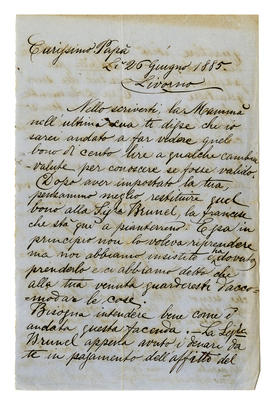 Carissimo Papà
Lì 26 Giugno 1885
Livorno
Nello scriverti, la Mammà
nell'ultima sua ti disse che io
sarei andato a far vedere quel
bono di cento lire a qualche cambia
valute per conoscere se fosse valido.
Dopo aver impostato la tua
pensammo meglio restituire quel
bono alla Sig.ra Brunel, la francese
che sta quì a pianterreno. Essa in
principio non lo voleva riprendere
ma noi abbiamo insistito
prenderlo e ci abbiamo detto che
alla tua venuta guarderesti d'acco-
modar le cose.
Bisogna intendere bene come è
andata questa facenda. La Sig.ra
Brunel appena avuto i denari da
te in pagamento dell'affitto del